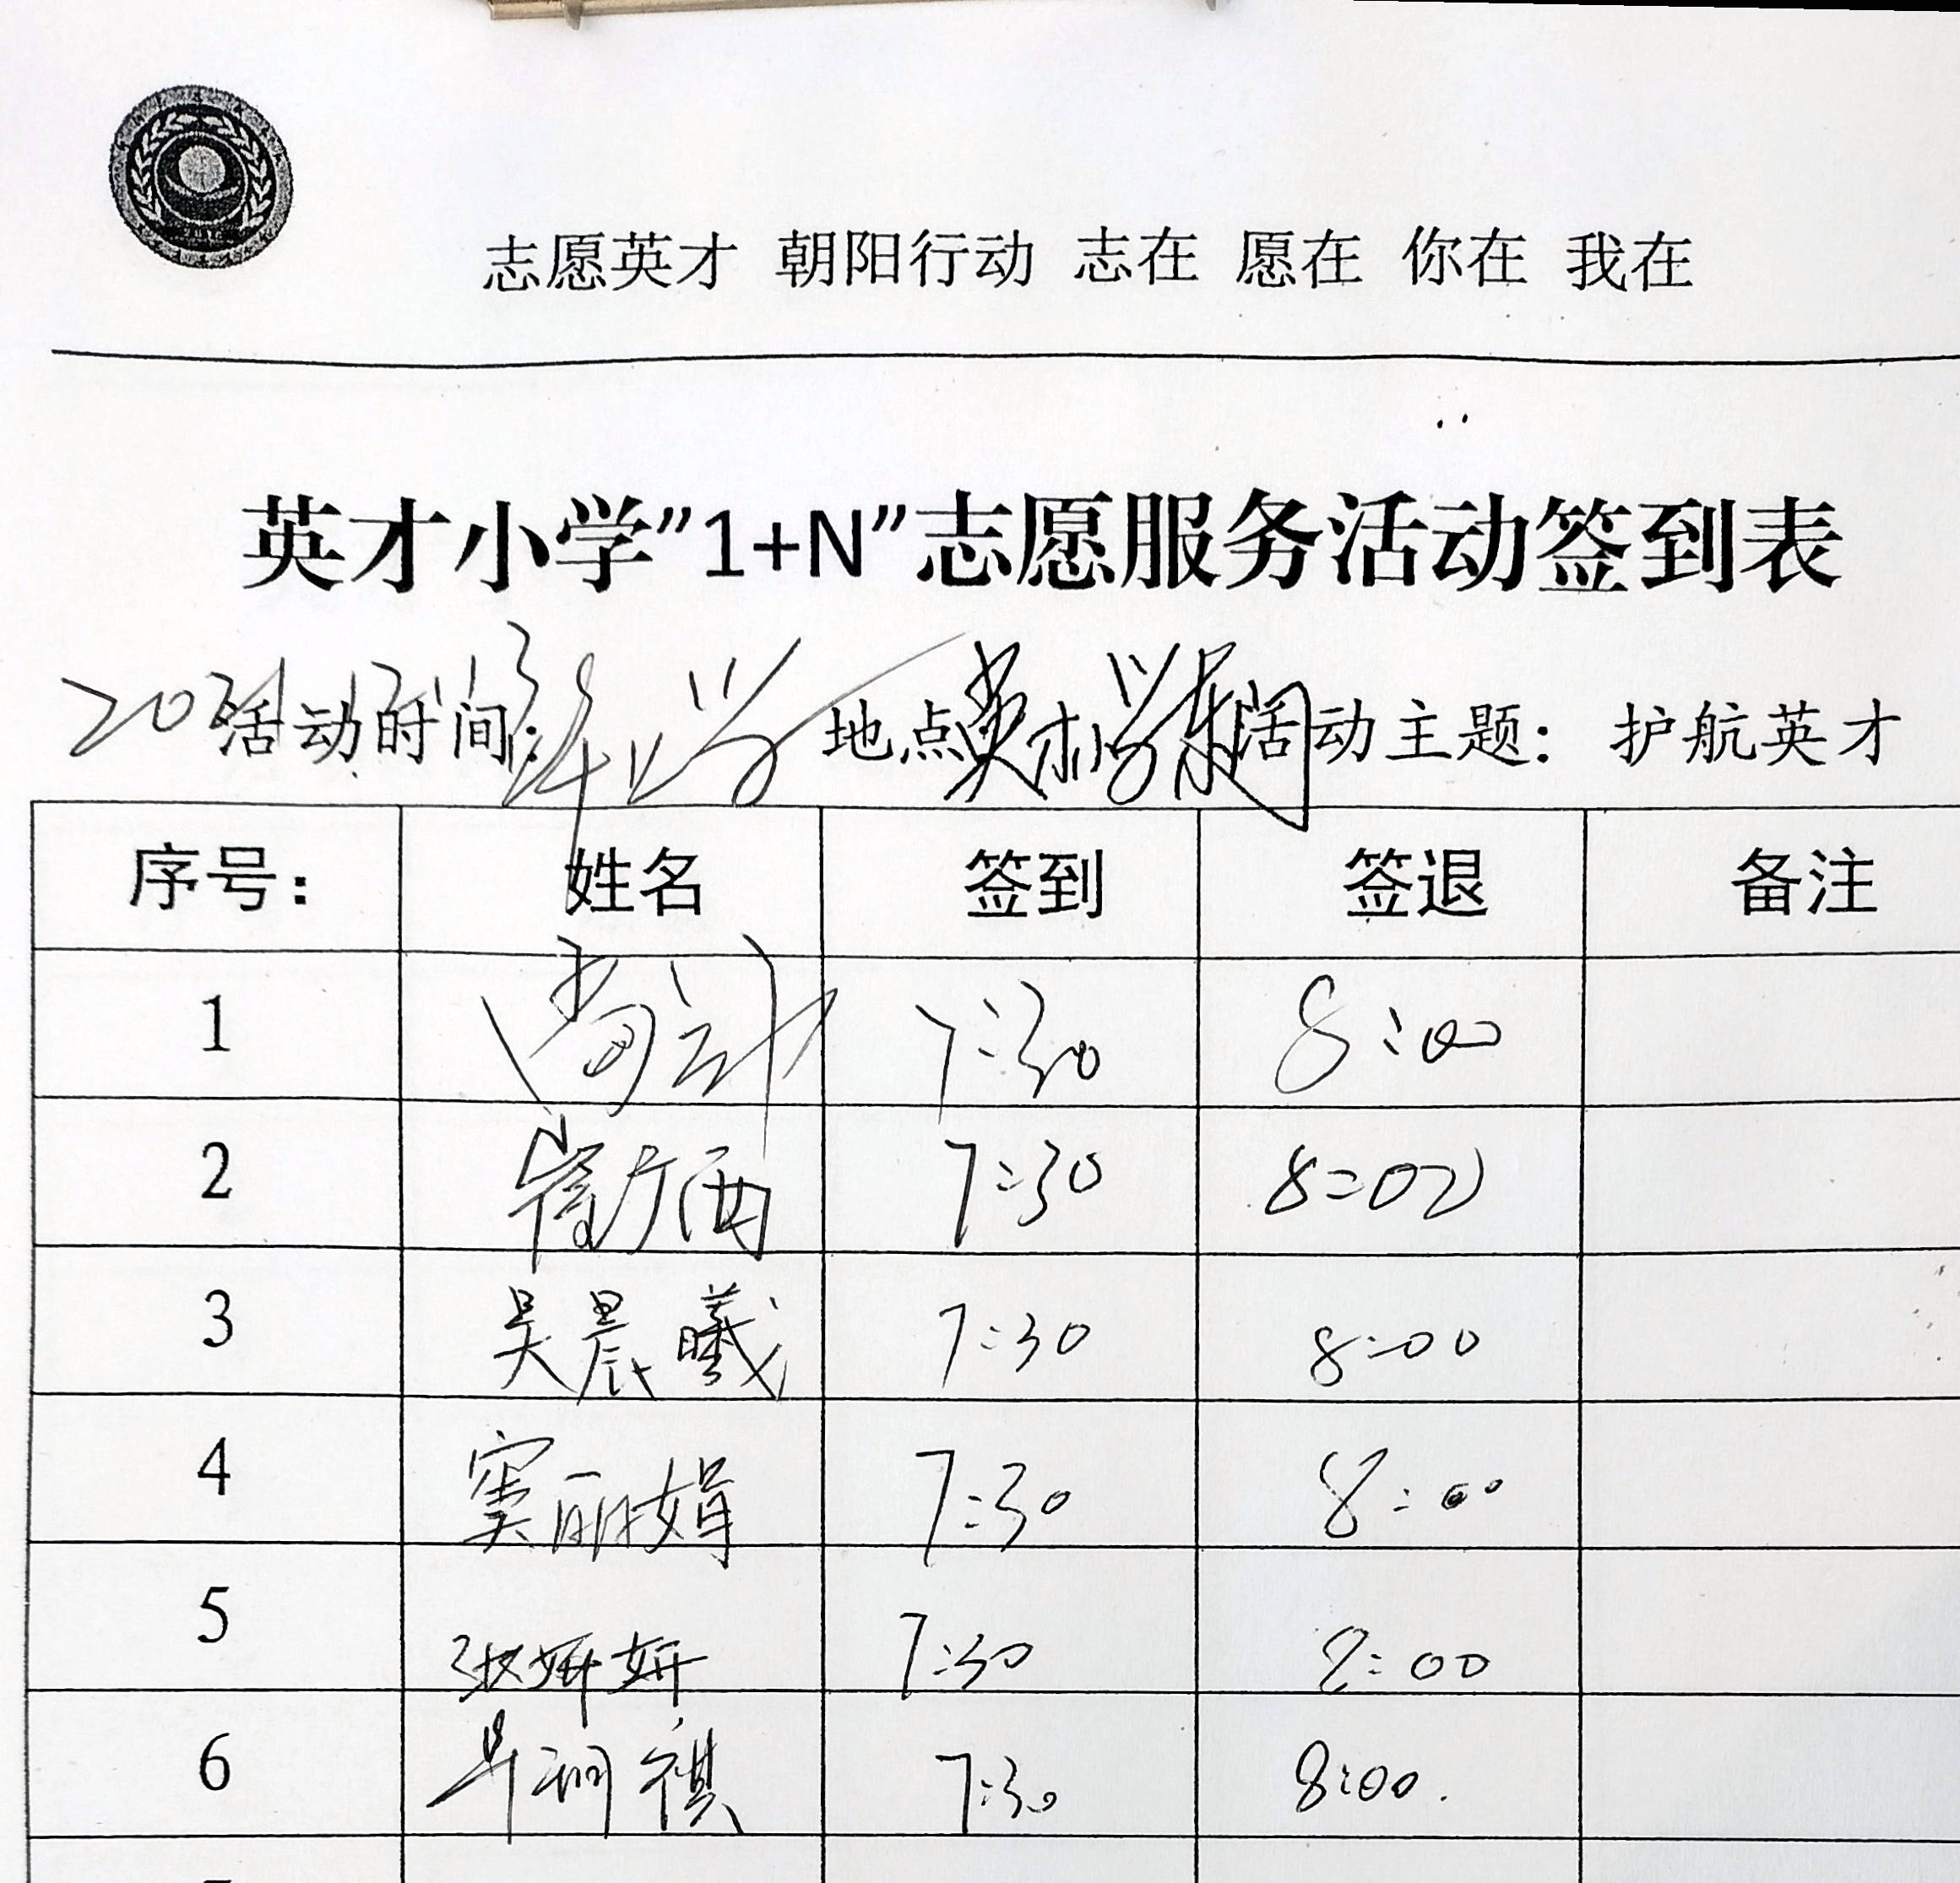 志愿英才 朝阳行动 志在 愿在 你在 我在
英才小学”1+N”志愿服务活动签到表
活动时间: 地点 英才小学东门 活动主题: 护航英才
序号: 姓名 签到 签退 备注
1 7:30 8:00
2 7:30 8:00
3 吴晨曦 7:30 8:00
4 窦丽娟 7:30 8:00
5 张妍妍 7:30 8:00
6 7:30 8:00.